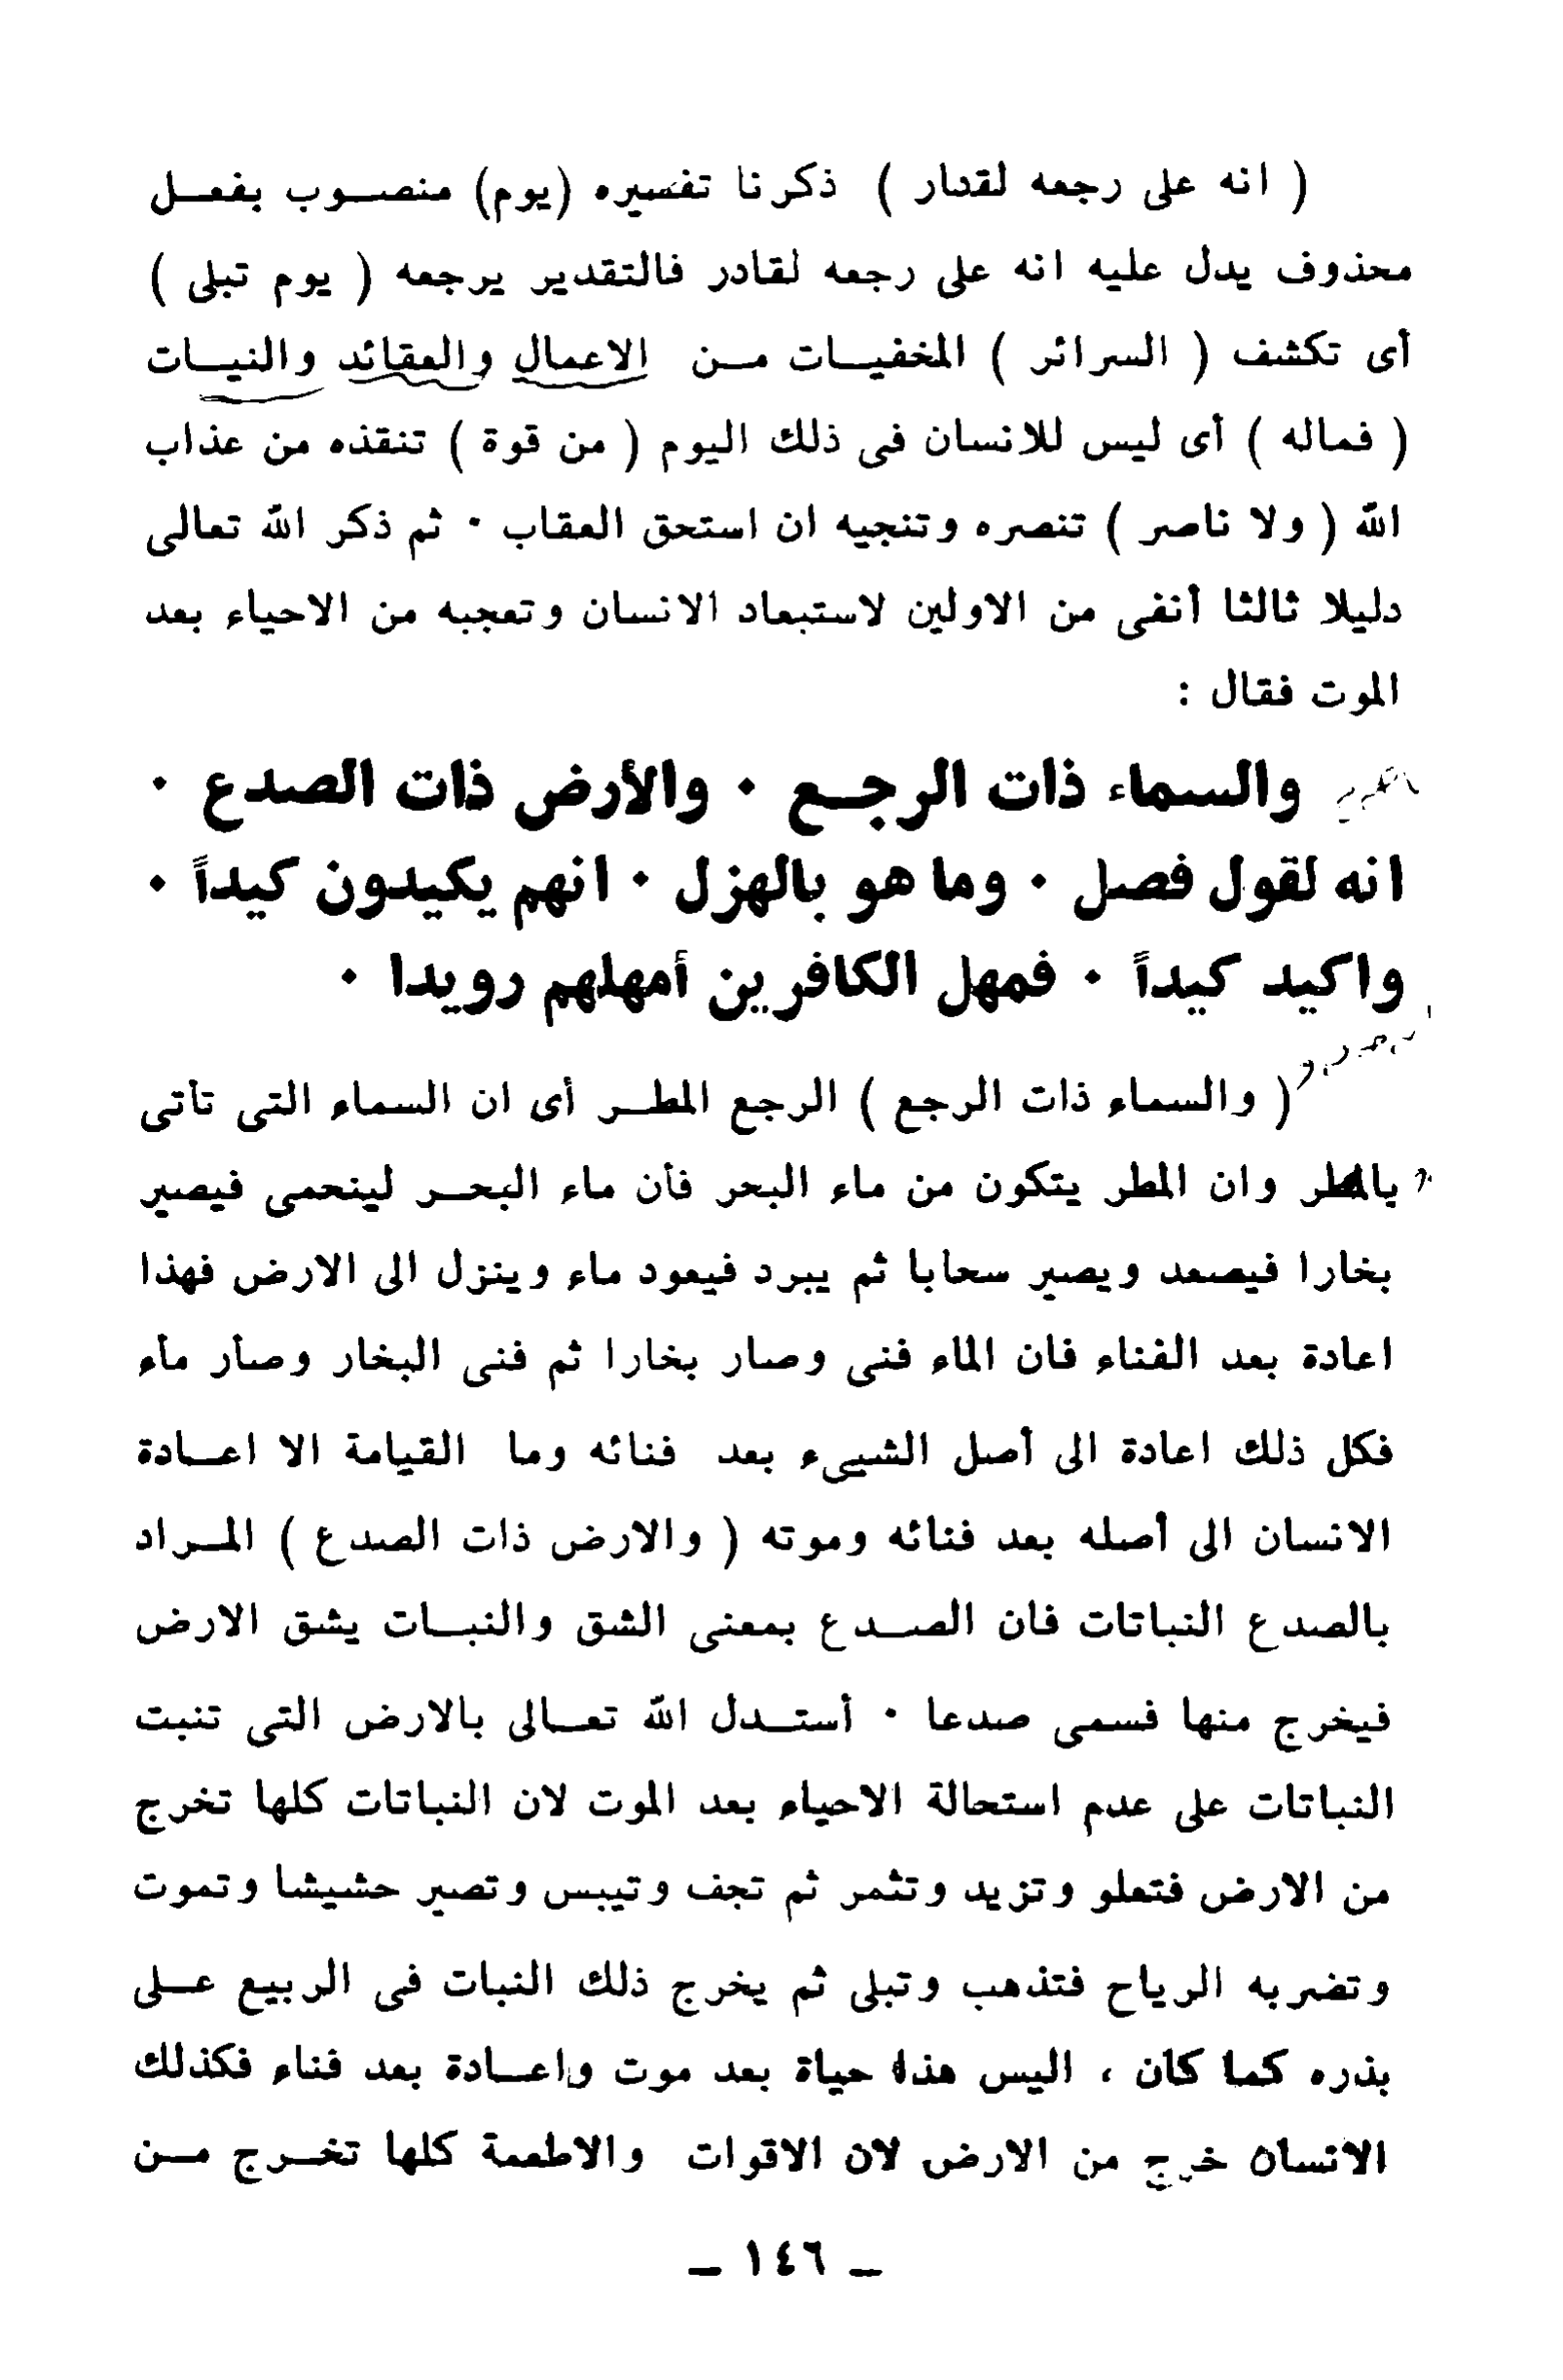 ( انه على رجعه لقدار ) ذكرنا تفسيره (يوم) منصوب بفعل
محذوف يدل عليه انه على رجعه لقادر فالتقدير يرجعه ( يوم تبلى )
أى تكشف ( السرائر ) المخفيات من الاعمال والعقائد والنيات
( فماله ) أى ليس للانسان فى ذلك اليوم ( من قوة ) تنقذه من عذاب
الله ( ولا ناصر ) تنصره وتنجيه ان استحق العقاب ٠ ثم ذكر الله تعالى
دليلا ثالثا أنفى من الاولين لاستبعاد الانسان وتعجبه من الاحياء بعد
الموت فقال :
والسماء ذات الرجع ٠ والأرض ذات الصدع ٠
انه لقول فصل ٠ وما هو بالهزل ٠ انهم يكيدون كيداً ٠
واكيد كيداً ٠ فمهل الكافرين أمهلهم رويدا ٠
( والسماء ذات الرجع ) الرجع المطر أى ان السماء التى تأتى
بالمطر وان المطر يتكون من ماء البحر فأن ماء البحر لينحمى فيصير
بخارا فيصعد ويصير سحابا ثم يبرد فيعود ماء وينزل الى الارض فهذا
اعادة بعد الفناء فان الماء فنى وصار بخارا ثم فنى البخار وصأر مأء
فكل ذلك اعادة الى أصل الشيىء بعد فنائه وما القيامة الا اعادة
الانسان الى أصله بعد فنائه وموته ( والارض ذات الصدع ) المراد
بالصدع النباتات فان الصدع بمعنى الشق والنبات يشق الارض
فيخرج منها فسمى صدعا ٠ أستدل الله تعالى بالارض التى تنبت
النباتات على عدم استحالة الاحياء بعد الموت لان النباتات كلها تخرج
من الارض فتعلو وتزيد وتثمر ثم تجف وتيبس وتصير حشيشا وتموت
وتضربه الرياح فتذهب وتبلى ثم يخرج ذلك النبات فى الربيع على
بذره كما كان ، اليس هذا حياة بعد موت واعادة بعد فناء فكذلك
الانسان خرج من الارض لان الاقوات والاطعمة كلها تخرج من
ـ ١٤٦ ـ